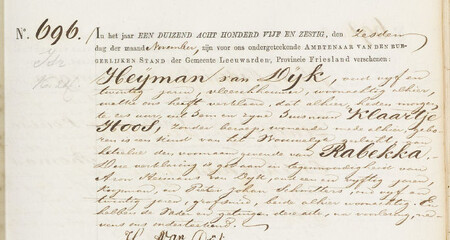 N°. 696.
In het jaar EEN DUIZEND ACHT HONDERD VIJF EN ZESTIG, den Zesden
dag der maand November, zijn voor ons ondergeteekende AMBTENAAR VAN DEN BUR-
GERLIJKEN STAND der Gemeente Leeuwarden, Provincie Friesland verschenen:
Heijman van Dijk, oud vyf en
twintig jaren, vleeschhouwer, woonachtig alhier,
welke ons heeft verklaard, dat alhier, heden morgen
te uure, uit hem en zyne huisvrouw Klaartje
Hoos, zonder beroep, wonende mede alhier, gebo-
ren is een kind van het Vrouwelijk geslacht, aan
hetwelk de voornaam gegeven wordt van Rabekka.
Deze verklaring is gedaan in tegenwoordigheid van
Aron Heimans van Dyk, oud een en vyftig jaren,
koopman, en Pieter Johan Scheltens, oud vyf en
twintig jaren, beide alhier woonachtig. En
hebben de Vader en getuigen deze akte, na voorlezing, ne-
vens ons onderteekend.
H. Van Dijk